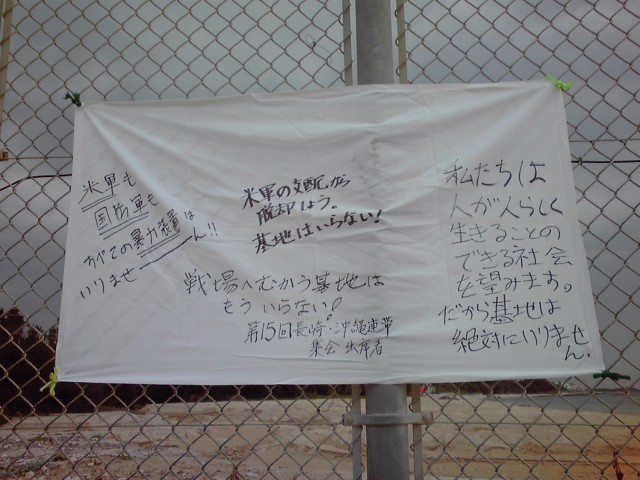 私たちは
人が人らしく
生きることの
できる社会
を望みます。
だから基地は
絶対にいりません.
米軍の支配から
脱却しよう。
基地はいらない!
米軍も
国防軍も
すべての暴力装置は
いりませーーん!!
戦場へむかう基地は
もういらない!
第15回長崎・沖縄連帯
集会 出席者